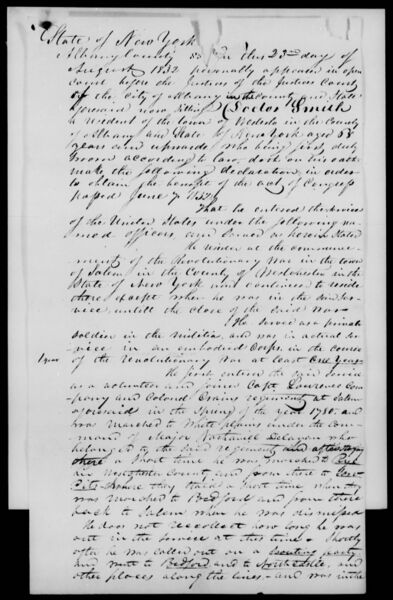 State of New York
Albany County SS On this 23rd day of
August 1832 personally appeared in open
court before the Justices of the Justices Court
of the City of Albany in the County and State
aforesaid now sitting Doctor Smith
a resident of the town of Westerlo in the County
of Albany and State of New York aged 
years and upwards who being first duly
sworn according to law, doth on his oath
make the following declaration, in order
to obtain the benefit of the act of Congress
passed June 7 1832
That he entered the service
of the United States under the following na-
med officers and served as herein stated
He resided at the commence-
ments of the Revolutionary War in the town
of Salem in the County of Westchester in the
State of New York and continued to reside
there except when he was in the ser-
vice untill the close of the said War
He served as a private
soldier in the militia, and was in actual ser-
vice in an embodied Corps in the course
1 year of the revolutionary War at least one year
He first entered the said service
as a volunteer and joined Capt Lawrence Com-
pany and Colonel Crains regiment at Salem
aforesaid in the Spring of the year 1780 and
was marched to White plains under the com-
mand of Major Nathaniel Delavan who
belonged to the said regiment and after staying
there a short time he was marched to
in Westchester County and from there to
they staid a short time when they
was marched to Bedford and from there
back to Salem where he was dismissed
He does not recollect how long he was
out in the service at this time. Shortly
after he was called out on a scouting party
and went to Bedford and to Northcastle, and
other places along the lines, and was in the